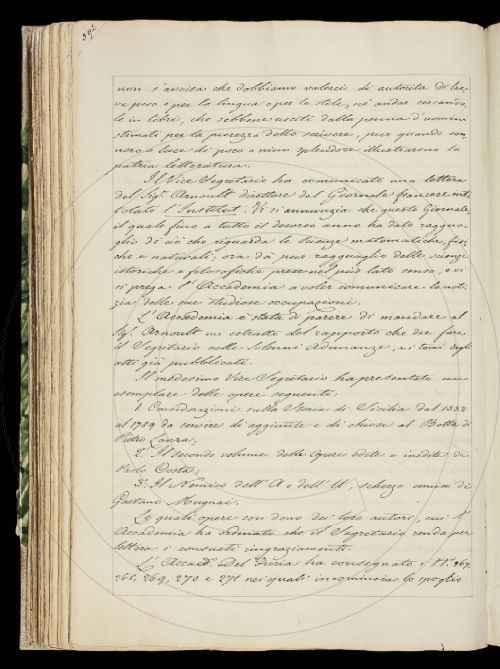 392
non s'avvisa che dobbiamo valerci di autorità di lie-
ve peso o per la lingua o per lo stile, nè andar cercando
le in libri, che sebbene usciti dalla penna d'uomini
stimati per la purezza dello scrivere, pur quando ven
nero a luce di poco o niun splendore illustrarono la
patria letteratura.
Il Vice Segretario ha comunicato una lettera
del Sig. Arnoult direttore del Giornale francese inti
tolato l'Institut. Vi si annunzia che questo Giornale
il quale fino a tutto il decorso anno ha dato raggua
glio di ciò che riguarda le scienze matematiche, fisi
che e naturali; ora dà pur ragguaglio delle scienze
istoriche e filosofiche prese nel più lato senso, e vi
si prega l'Accademia a voler comunicare la noti
zia delle sue studiose occupazioni.
L'Accademia è stata di parere di mandare al
Sig. Arnoult un estratto del rapporto che dee fare
il Segretario nelle solenni Adunanze, e i tomi degli
atti già pubblicati.
Il medesimo Vice Segretario ha presentato un
esemplare delle opere seguenti:
1. Considerazioni sulla Storia di Sicilia dal 1532
al 1789 da servire di aggiunte e di chiose al Botta di
Pietro Lanza;
2. Il secondo volume delle Opere edite e inedite di
Paolo Costa;
3. Il Nemico dell'A e dell'U, scherzo comico di
Gaetano Mugnai.
Le quali opere son dono dei loro autori, cui l'
Accademia ha ordinato che il Segretario renda per
lettera i consueti ringraziamenti.
L'Accad. Del Furia ha consegnato i N. 267,
268, 269, 270 e 271 nei quali incomincia lo spoglio